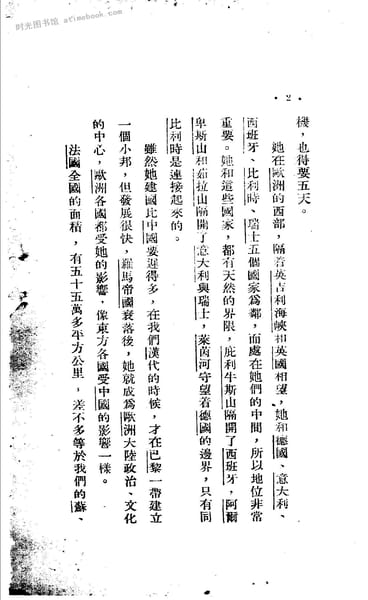 时光图书馆 atimebook.com
·2·
機，也得要五天。
她在歐洲的西部，隔着英吉利海峽和英國相望，她和德國、意大利、
西班牙、比利時、瑞士五個國家爲鄰，而處在她們的中間，所以地位非常
重要。她和這些國家，都有天然的界限，庇利牛斯山隔開了西班牙，阿爾
卑斯山和茹拉山隔開了意大利與瑞士，萊茵河守望着德國的邊界，只有同
比利時是連接起來的。
雖然她建國比中國要遲得多，在我們漢代的時候，才在巴黎一帶建立
一個小邦，但發展很快，羅馬帝國衰落後，她就成爲歐洲大陸政治、文化
的中心，歐洲各國都受她的影響，像東方各國受中國的影響一樣。
法國全國的面積，有五十五萬多平方公里，差不多等於我們的蘇、